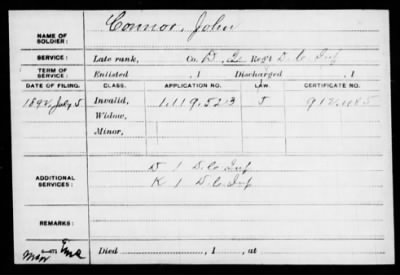 NAME OF SOLDIER: Connor, John
SERVICE: Late rank, Co. D, Reg't D. C. Inf
TERM OF SERVICE: Enlisted , 1 Discharged , 1
DATE OF FILING. CLASS. APPLICATION NO. LAW. CERTIFICATE NO.
1892, July 5 Invalid, 1,119,523
Widow,
Minor,
ADDITIONAL SERVICES:
D 1 D.C. Inf
K 1 D.C. Inf
REMARKS:
Died , 1 , at